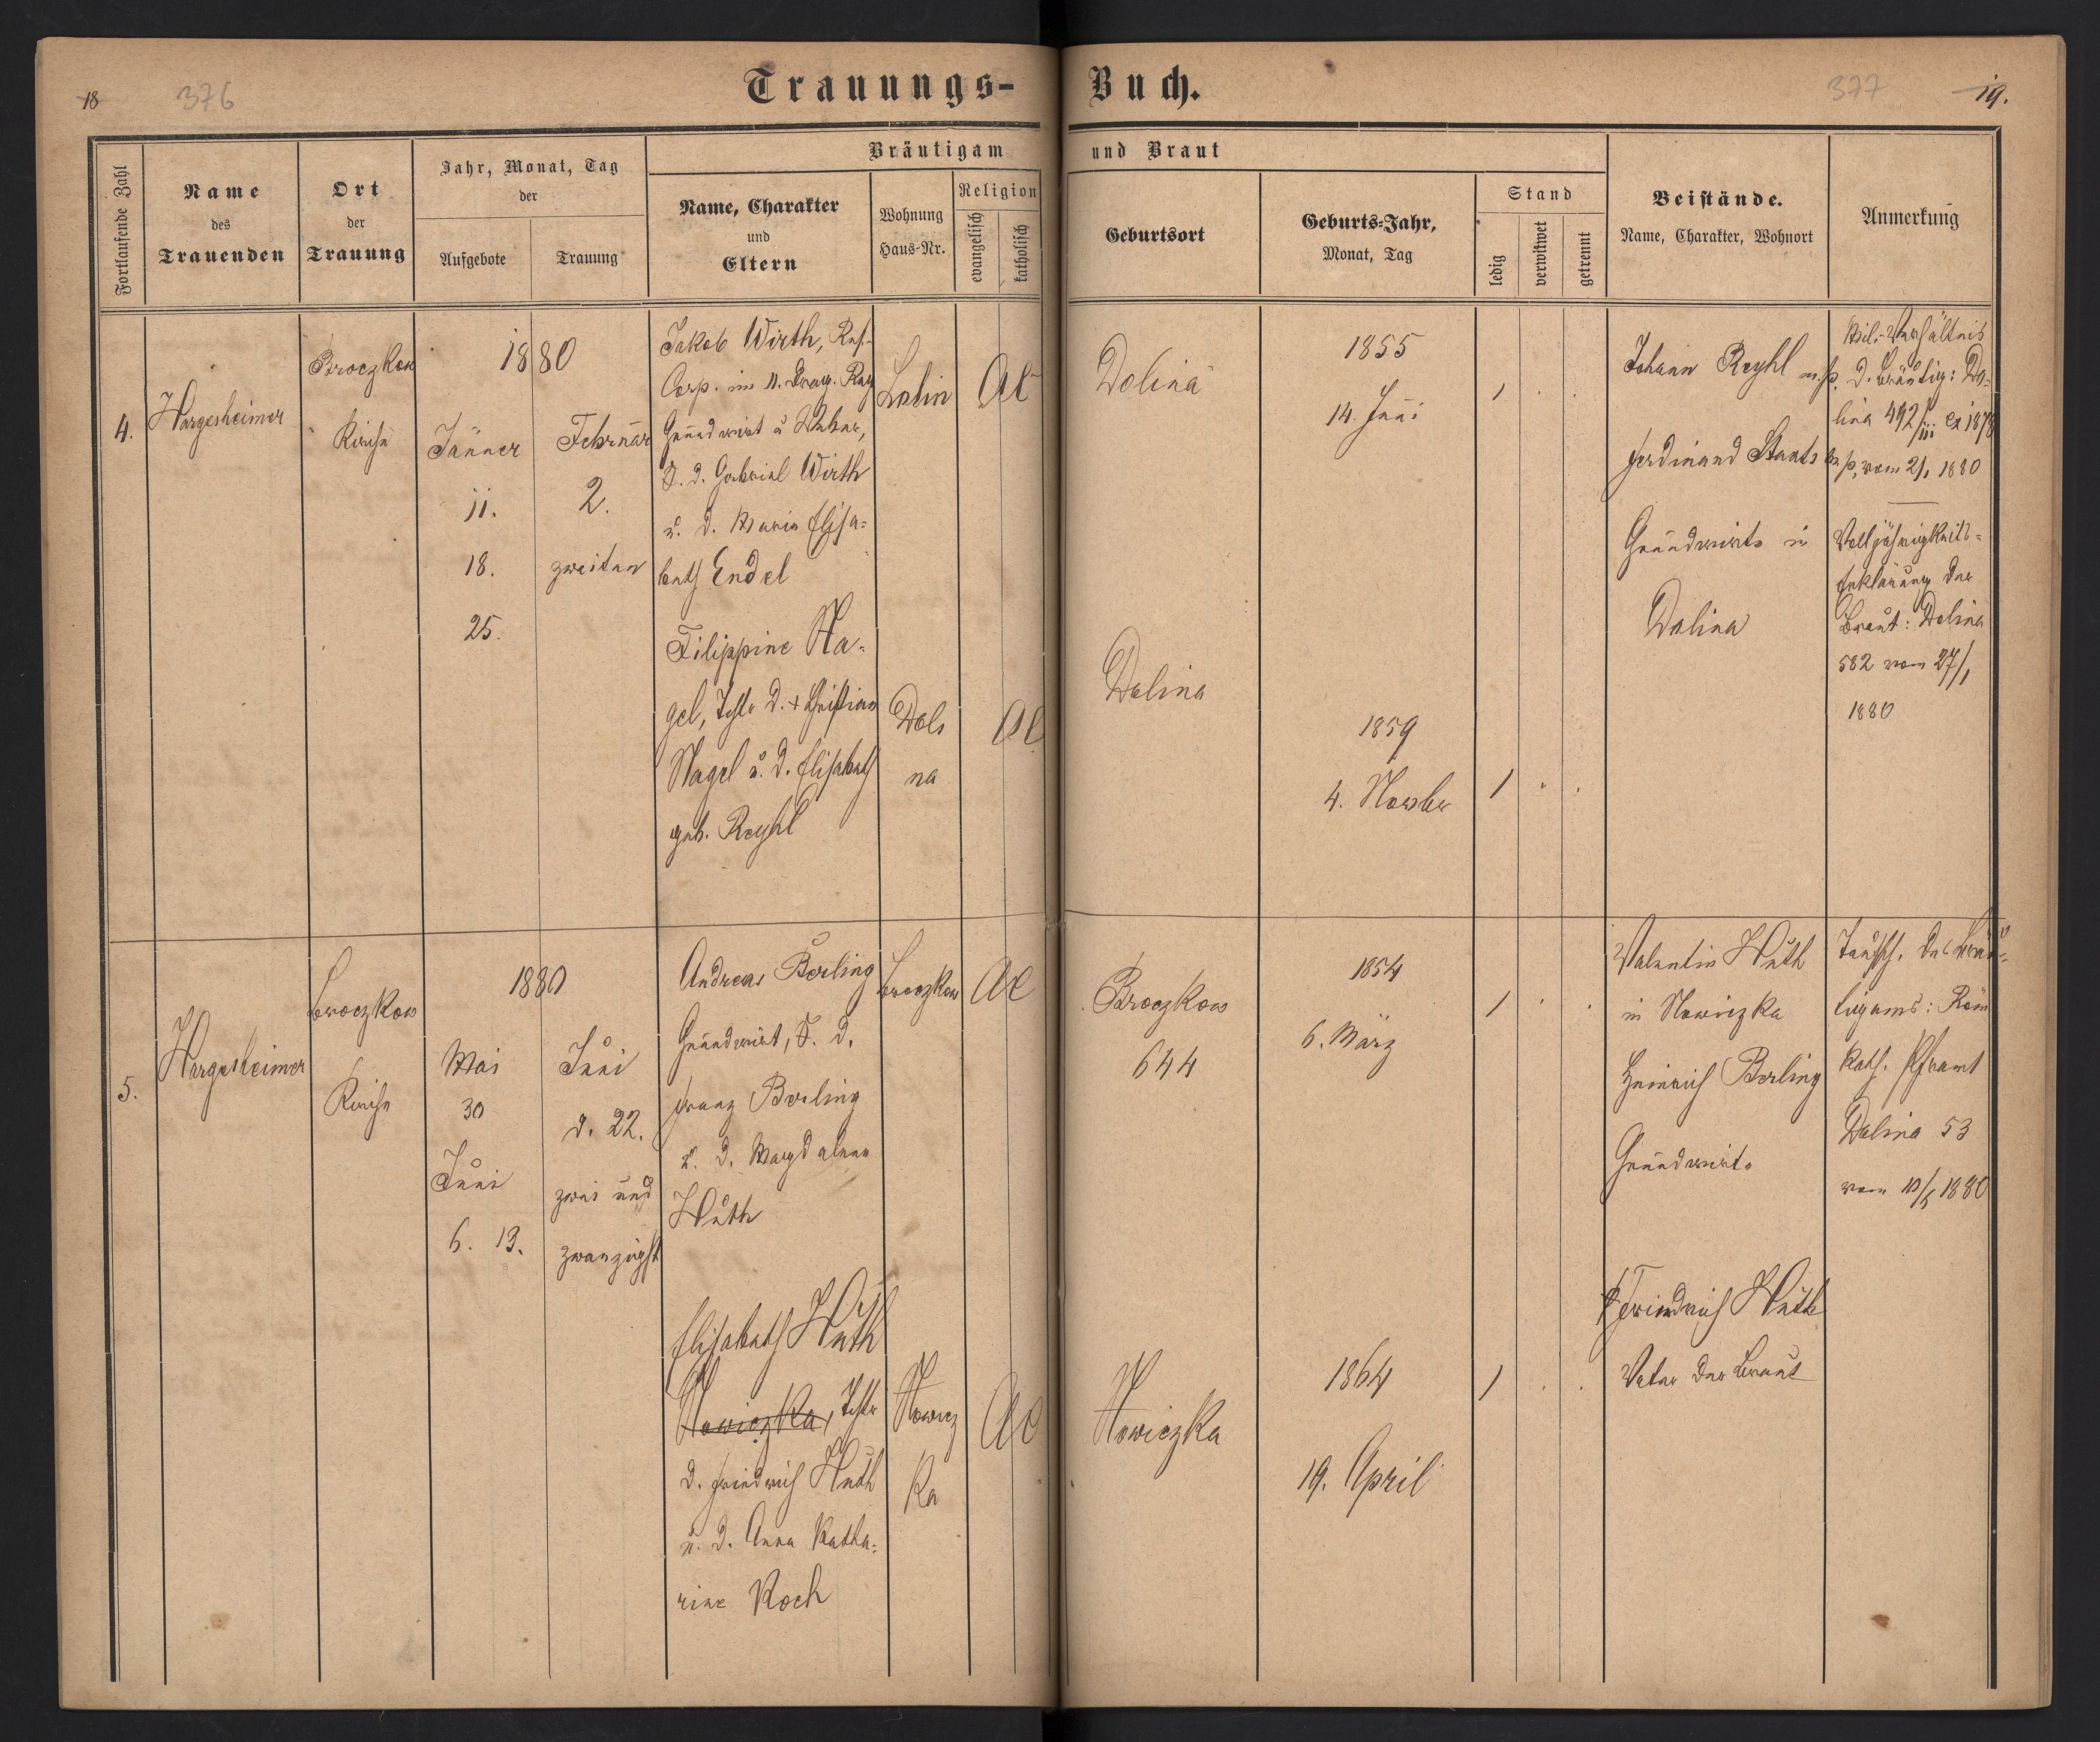 18
376
Trauungs-
Buch.
377
19.
Fortlaufende Zahl
Name
des
Trauenden
Ort
der
Trauung
Jahr, Monat, Tag
der
Aufgebote
Trauung
Bräutigam
und Braut
Name, Charakter
und
Eltern
Wohnung
Haus-Nr.
Religion
evangelisch
katholisch
Geburtsort
Geburts-Jahr,
Monat, Tag
Stand
ledig
verwitwet
getrennt
Beistände.
Name, Charakter, Wohnort
Anmerkung
4.
Hargesheimer
Broczkow
Kirche
1880
Jänner
11.
18.
25.
Februar
2.
zweiten
Jakob Wirth, Res.
Corp. im 11. Drag. Reg
Grundwirt u Weber,
S. d. Gabriel Wirth
u. d. Maria Elisa=
beth Endel
AC
Dolina
1855
14. Juni
1
Filippine Na=
gel, Tchtr d. + Christian
Nagel u. d. Elisabeth
geb. Reyhl
Doli
na
AC
Dolina
1859
4. Novbr
1
Johann Reyhl m.p.
Ferdinand Staats m.p.
Grundwirte in
Dolina
Mil.-Verhältnis
d. Bräutig: Do=
lina 492/III ex 1878
vom 2/1 1880
Volljährigkeits=
Erklärung der
Braut: Dolina
582 vom 27/1
1880
5.
Hargesheimer
Broczkow
Kirche
1880
Mai
30
Juni
6. 13.
Juni
d. 22.
zwei und
zwanzigst
Andreas Berling
Grundwirt, S. d.
Franz Berling
u. d. Magdalena
Huth
Broczkow
AC
Broczkow
644
1854
6. März
1
Elisabeth Huth
Nowiczka, Tchtr
d. Friedrich Huth
u. d. Anna Katha=
rine Koch
Nowicz
ka
AC
Nowiczka
1864
19. April
1
Valentin Huth
in Nowiczka
Heinrich Berling
Grundwirte
Friedrich Huth
Vater der Braut
Taufsch. des Bräu=
tigams: Röm
kath. Pframt
Dolina 53
vom 10/5 1880